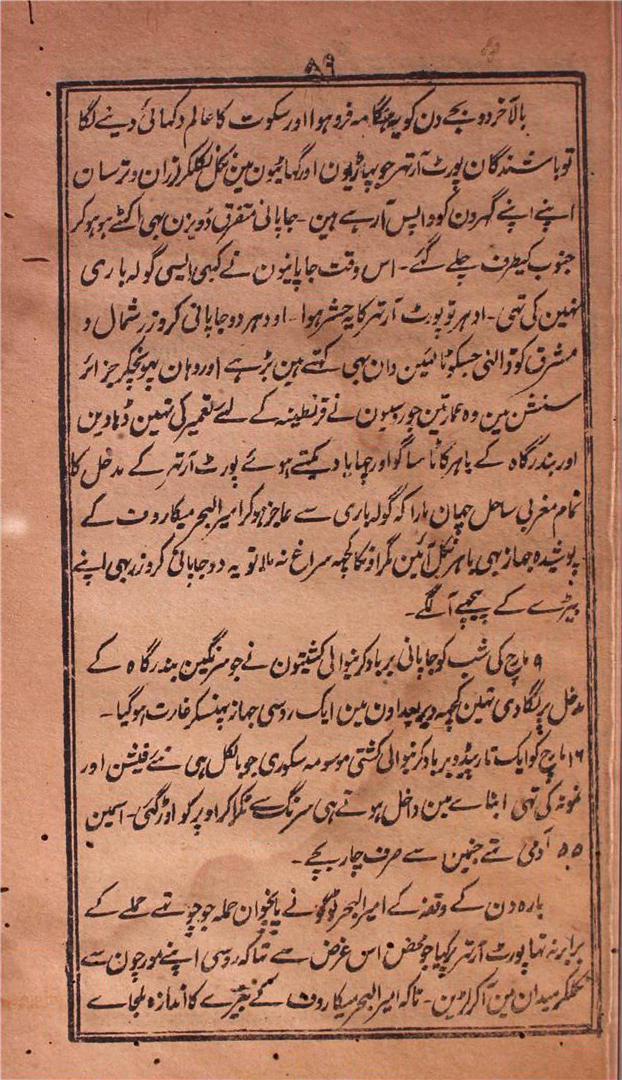 ٨٩
بالآخر دو بجے دن کو یہ ہنگامہ فرو ہوا اور سکوت کا عالم دکھائی دینے لگا
تو باشندگان پورٹ آرتھر جو پہاڑیون اور گھاٹیون مین نکل نکلکر لرزان و ترسان
اپنے اپنے گھرون کو واپس آرہے ہین ۔ جاپانی متفرق ڈویزن بھی اکٹھے ہو ہو کر
جنوب کیطرف چلے گئے ۔ اس وقت جاپانیون نے کبھی ایسی گولہ باری
نہین کی تھی ۔ ادہر تو پورٹ آرتھر کا یہ حشر ہوا ۔ اودہر دو جاپانی کروزر شمال و
مشرق کو ڈالنی جسکو ٹالئین وان بھی کہتے ہین بڑہے اور وہان پہونچکر جزائر
سنشن مین وہ عمارتین جو روسیون نے قرنطینہ کے لئے تعمیر کی تہین ڈہا دین
اور بندرگاہ کے باہر کاٹا ساگو اور چہایا دیکہتے ہوئے پورٹ آرتھر کے مدخل کا
تمام مغربی ساحل چھان مارا کہ گولہ باری سے عاجز ہو کر امیر البحر میکاروف کے
پوشیدہ جہاز بھی باہر نکل آئین مگر اونکا کچہہ سراغ نہ ملا تو یہ دو جاپانی کروزر بھی اپنے
بیڑے کے پیچہے آ لگے ۔
٩ مارچ کی شب کو جاپانی برباد کرنیوالی کشتیون نے جو سرنگین بندرگاہ کے
مدخل پر لگا دی تہین کچہہ دیر بعد اون مین ایک روسی جہاز پہنسکر غارت ہو گیا ۔
١٦ مارچ کو ایک تارپیڈو برباد کرنیوالی کشتی موسومہ سکوری جو بالکل ہی نئے فیشن اور
نمونہ کی تھی ابنائے مین داخل ہوتے ہی سرنگ سے ٹکرا کر اوپر کو اوڑ گئی ۔ اسمین
٥٥ آدمی تہے جنمین سے صرف چار بچے ۔
بارہ دن کے وقفہ کے امیر البحر ٹوگو نے پانچوان حملہ جو چوتھے حملے کے
برابر نہ تہا پورٹ آرتھر پر کیا جو محض اس غرض سے تہا کہ روسی اپنے مورچون سے
نکلکر میدان مین آکر لڑین ۔ تاکہ امیر البحر میکاروف کے بیڑے کا اندازہ ملجاے